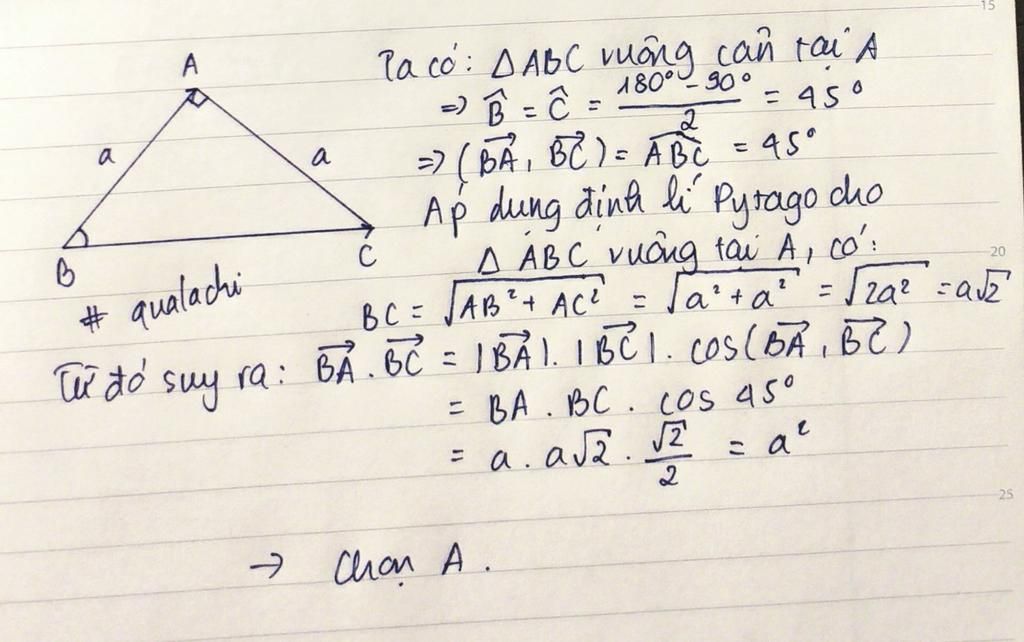 15
A
Ta có: Δ ABC vuông cân tại A
=> B̂ = Ĉ = (180° - 90°)/2 = 45°
a
a
=> (→BA, →BC) = ^ABC = 45°
Áp dụng định lí Pytago cho
Δ ABC vuông tại A, có:
B
C
20
# qualachi
BC = √(AB² + AC²) = √(a² + a²) = √(2a²) = a√2
Từ đó suy ra: →BA . →BC = |→BA| . |→BC| . cos(→BA, →BC)
= BA . BC . cos 45°
= a . a√2 . √2/2 = a²
25
→ Chọn A .